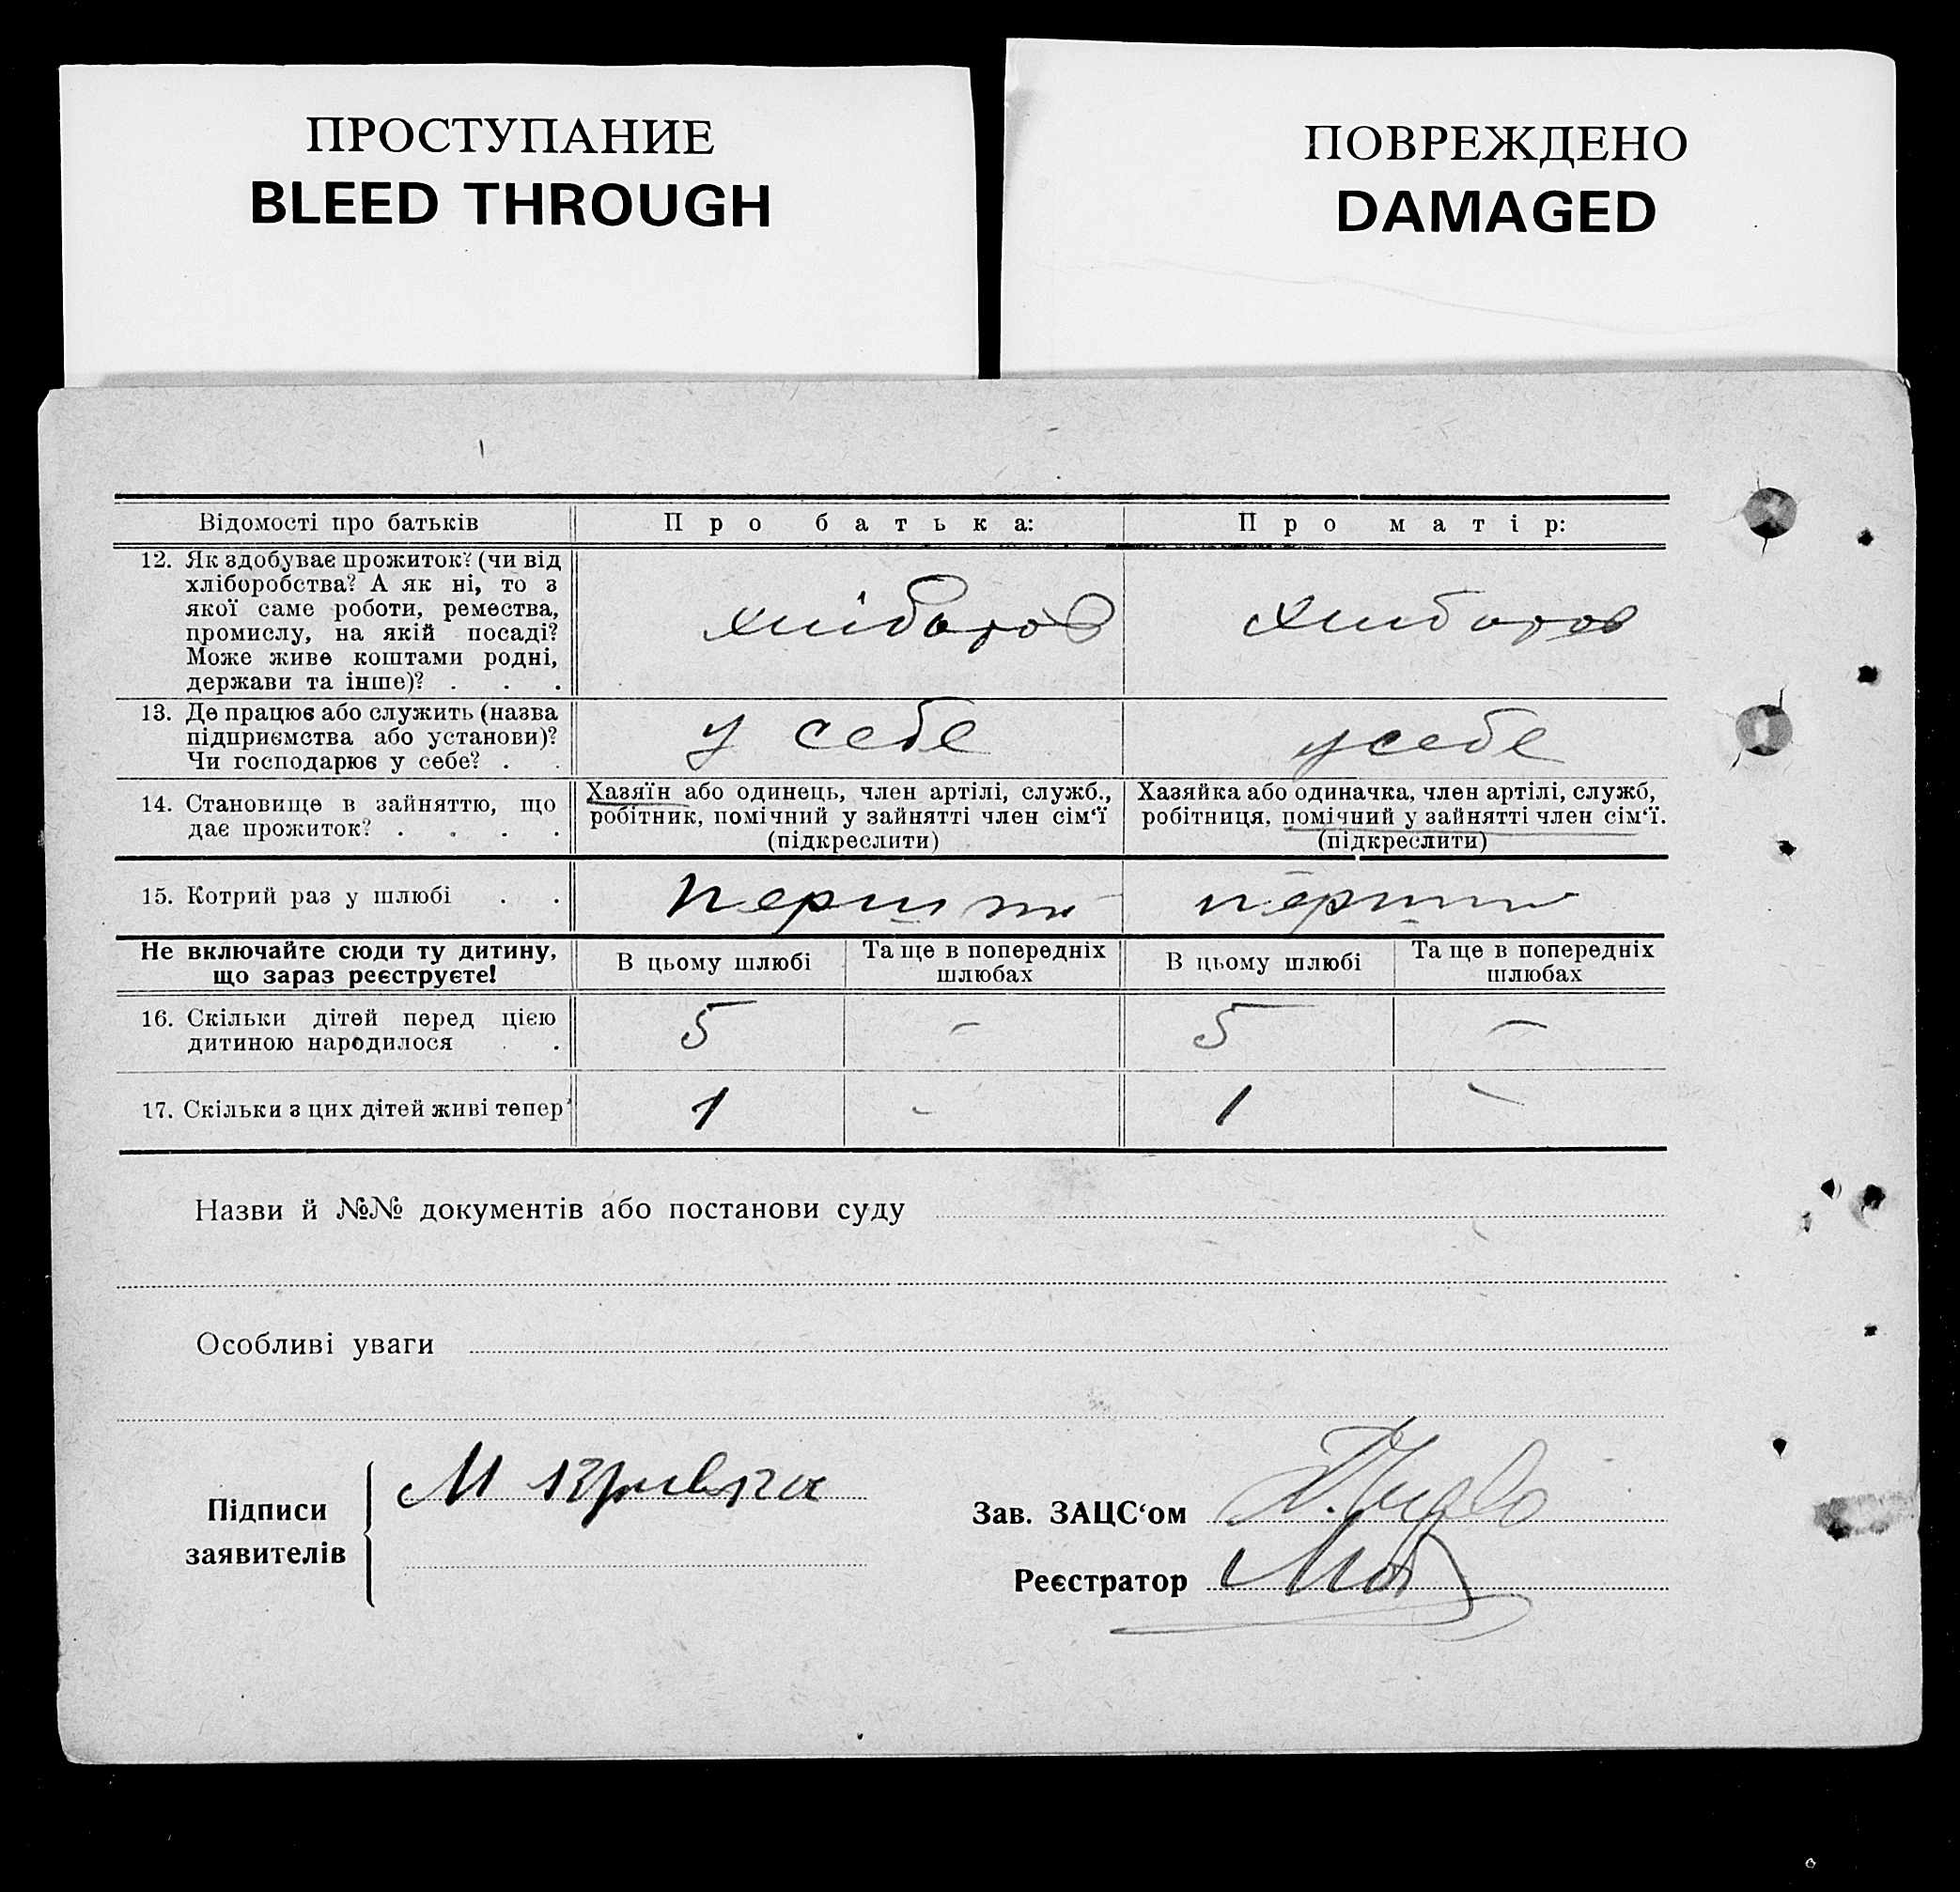 ПРОСТУПАНИЕ
BLEED THROUGH
ПОВРЕЖДЕНО
DAMAGED
Відомості про батьків
Про батька:
Про матір:
12. Як здобуває прожиток? (чи від
хліборобства? А як ні, то з
якої саме роботи, ремества,
промислу, на якій посаді?
Може живе коштами родні,
держави та інше)? . . .
13. Де працює або служить (назва
підприємства або установи)?
Чи господарює у себе? . .
у себе
у себе
14. Становище в зайняттю, що
дає прожиток? . . . .
Хазяїн або одинець, член артілі, служб.,
робітник, помічний у зайнятті член сім‘ї
(підкреслити)
Хазяйка або одиначка, член артілі, служб,
робітниця, помічний у зайнятті член сім‘ї.
(підкреслити)
15. Котрий раз у шлюбі . .
Не включайте сюди ту дитину,
що зараз реєструєте!
В цьому шлюбі
Та ще в попередніх
шлюбах
В цьому шлюбі
Та ще в попередніх
шлюбах
16. Скільки дітей перед цією
дитиною народилося . .
5 – 5 –
17. Скільки з цих дітей живі тепер
1 - 1 -
Назви й №№ документів або постанови суду
Особливі уваги
Підписи
заявителів
М
Зав. ЗАЦС‘ом
Реєстратор